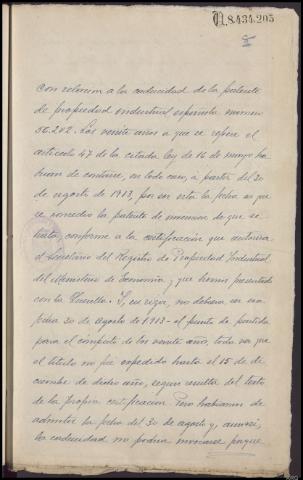 N.8.434.205
con relacion a la caducidad de la patente
de propiedad industrial española número
56.242. Los veinte años a que se refiere el
articulo 47 de la citada ley de 16 de mayo ha-
brian de contarse, en todo caso, a partir del 30
de agosto de 1913, por ser esta la fecha en que
se concedio la patente de invencion de que se
trata, conforme a la certificación que autoriza
el secretario del Registro de Propiedad Industrial
del Ministerio de Economia, y que hemos presentado
con la Y, en rigor, no debiera ser esa
fecha 30 de agosto de 1913 - el punto de partida
para el cómputo de los veinte años, toda vez que
el titulo no fué expedido hasta el 15 de di-
ciembre de dicho año, segun resulta del texto
de la propia certificacion. Pero habiamos de
admitir la fecha del 30 de agosto y, aun asi,
la caducidad no podria invocarse porque